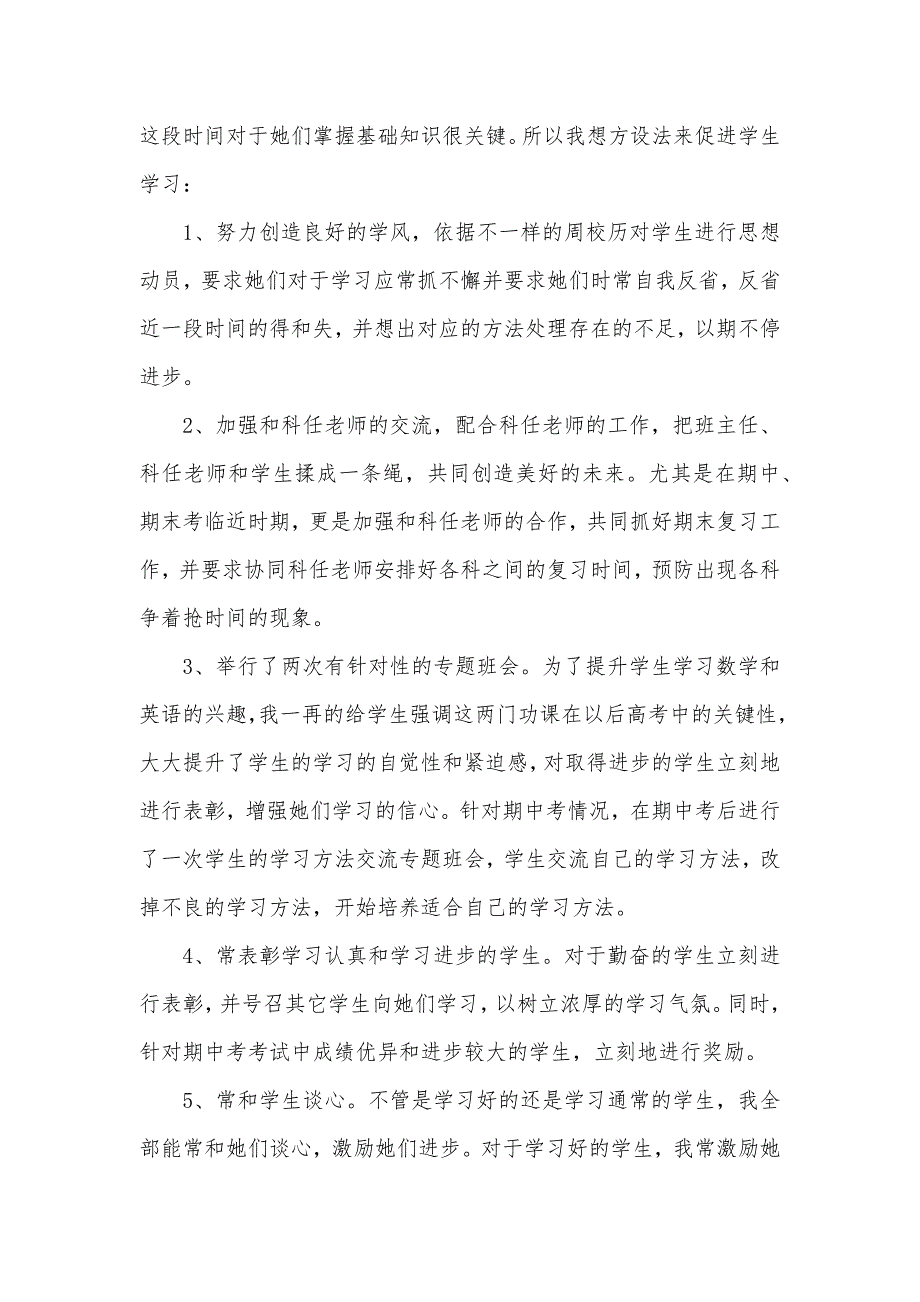 这段时间对于她们掌握基础知识很关键。所以我想方设法来促进学生
学习：
1、努力创造良好的学风，依据不一样的周校历对学生进行思想
动员，要求她们对于学习应常抓不懈并要求她们时常自我反省，反省
近一段时间的得和失，并想出对应的方法处理存在的不足，以期不停
进步。
2、加强和科任老师的交流，配合科任老师的工作，把班主任、
科任老师和学生揉成一条绳，共同创造美好的未来。尤其是在期中、
期末考临近时期，更是加强和科任老师的合作，共同抓好期末复习工
作，并要求协同科任老师安排好各科之间的复习时间，预防出现各科
争着抢时间的现象。
3、举行了两次有针对性的专题班会。为了提升学生学习数学和
英语的兴趣，我一再的给学生强调这两门功课在以后高考中的关键性，
大大提升了学生的学习的自觉性和紧迫感，对取得进步的学生立刻地
进行表彰，增强她们学习的信心。针对期中考情况，在期中考后进行
了一次学生的学习方法交流专题班会，学生交流自己的学习方法，改
掉不良的学习方法，开始培养适合自己的学习方法。
4、常表彰学习认真和学习进步的学生。对于勤奋的学生立刻进
行表彰，并号召其它学生向她们学习，以树立浓厚的学习气氛。同时，
针对期中考考试中成绩优异和进步较大的学生，立刻地进行奖励。
5、常和学生谈心。不管是学习好的还是学习通常的学生，我全
部能常和她们谈心，激励她们进步。对于学习好的学生，我常激励她